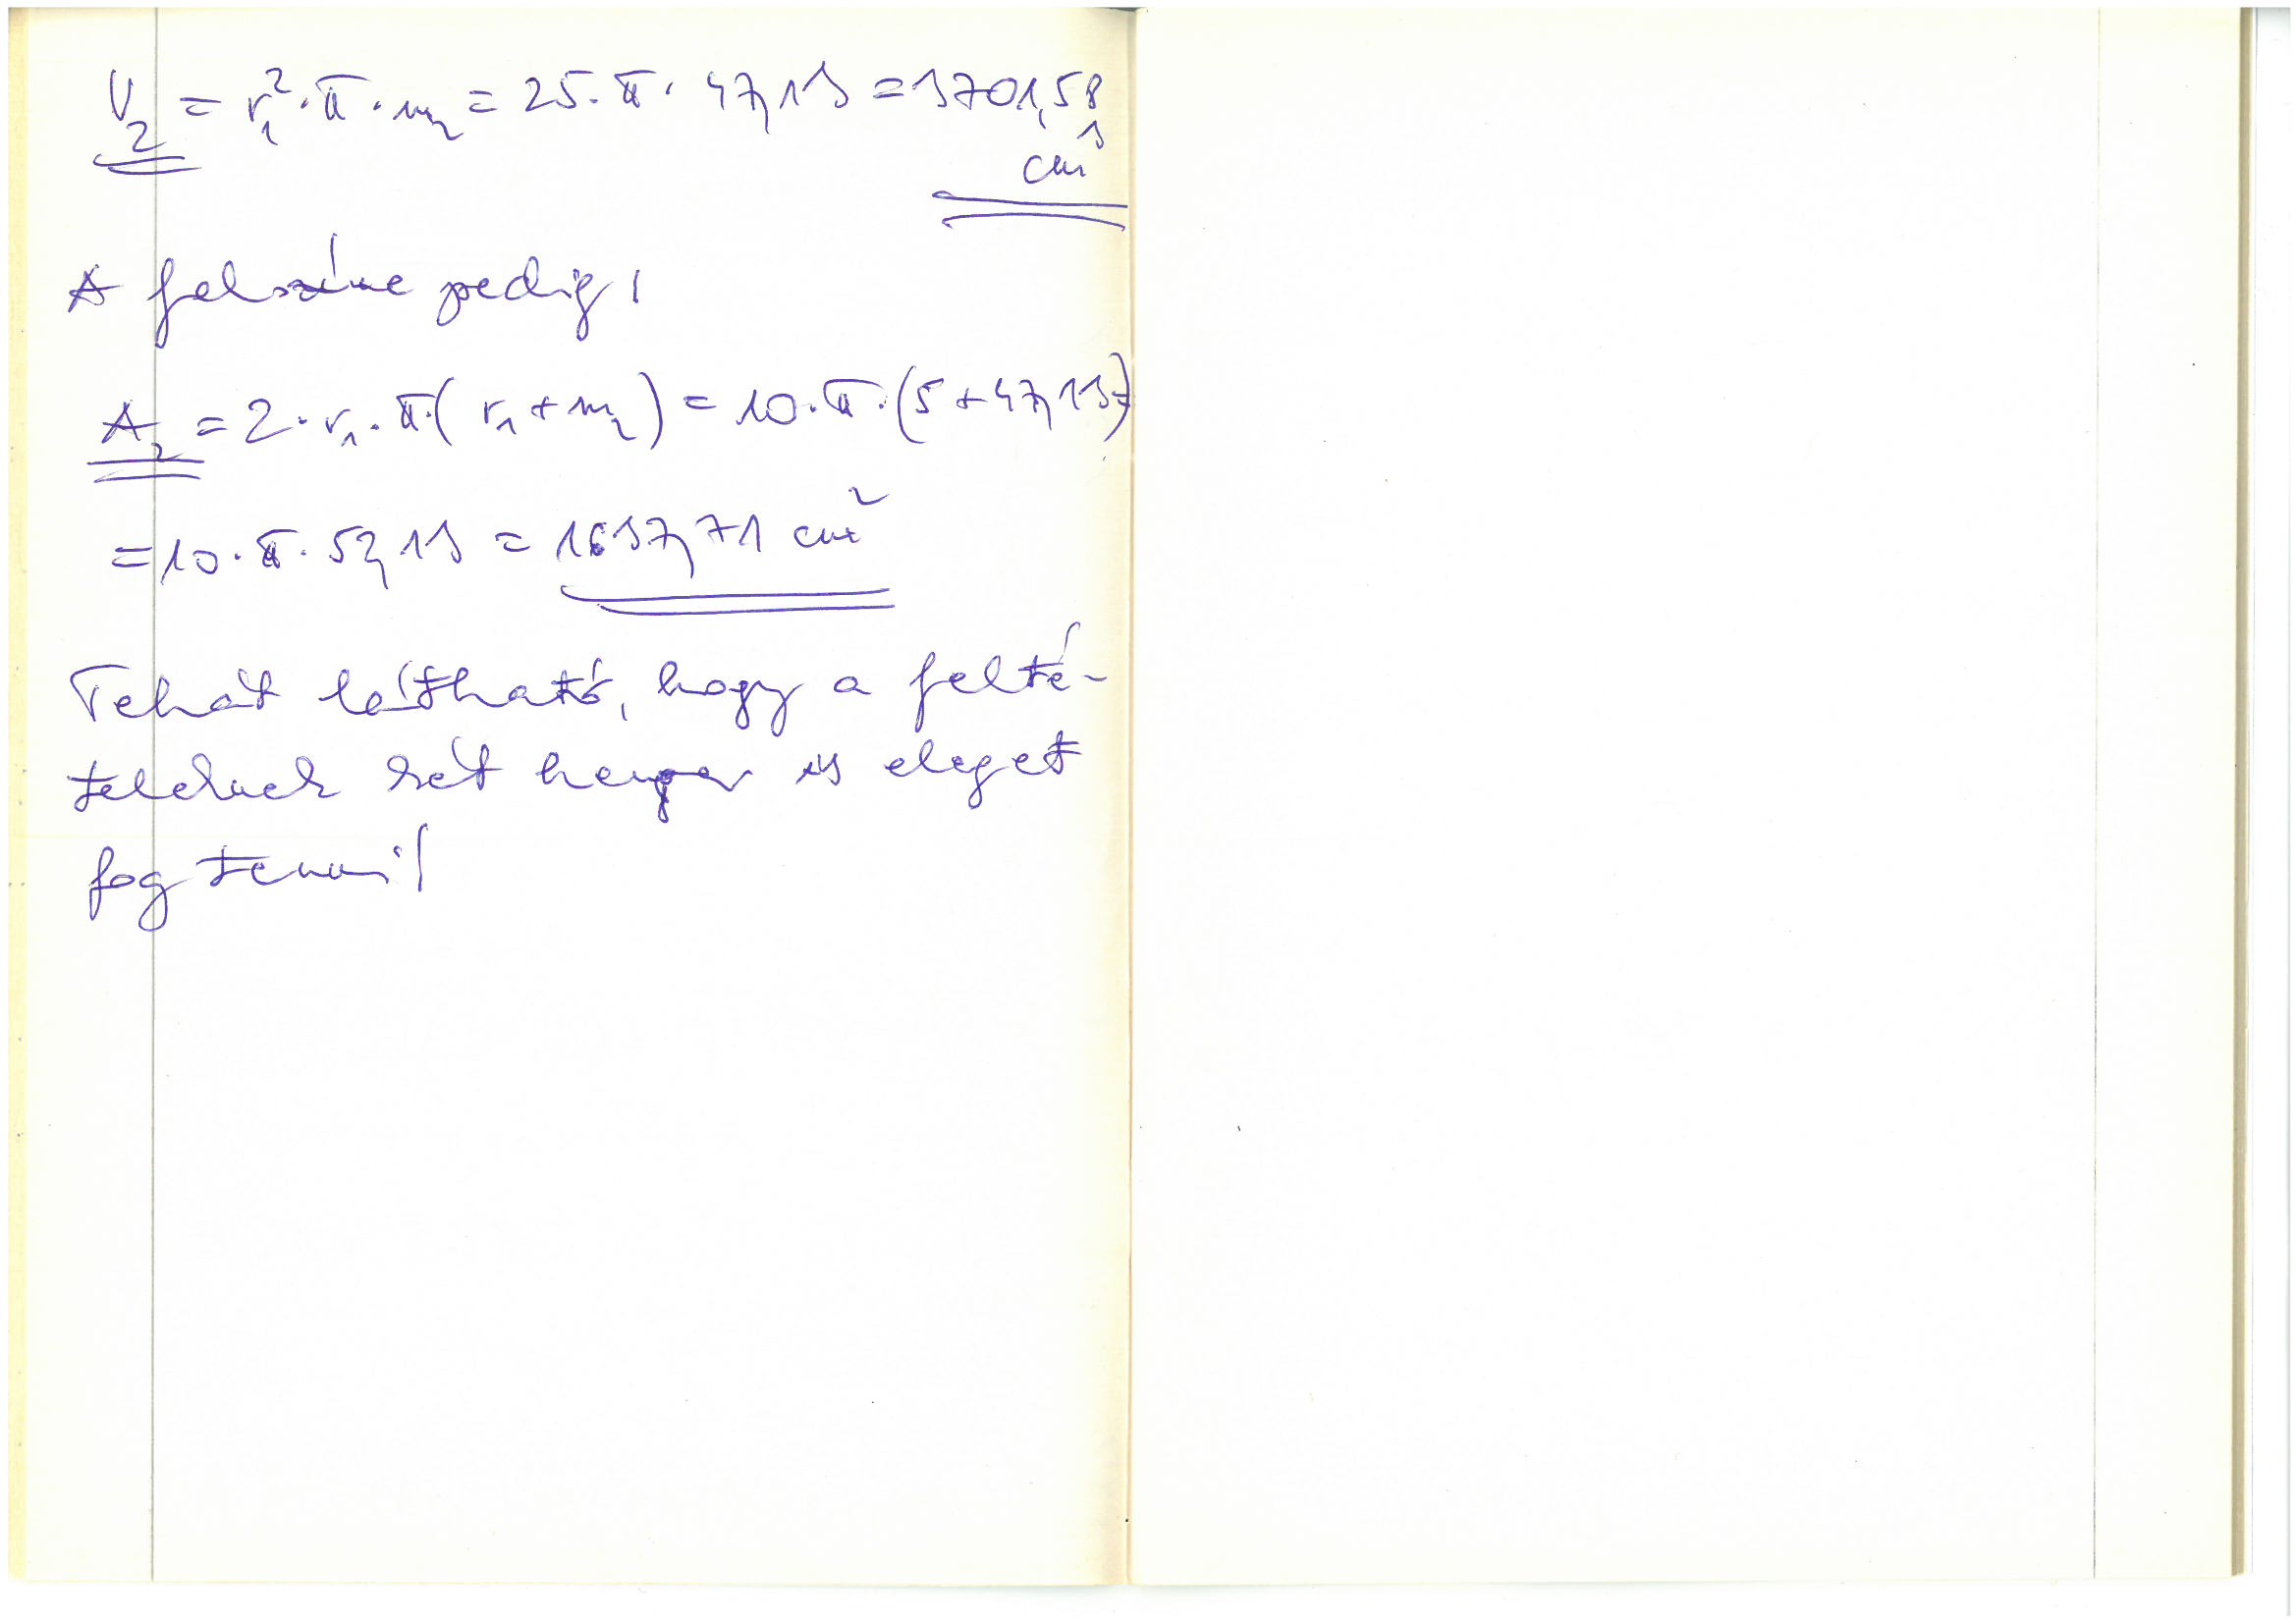 V₂ = r₁²·π·m₂ = 25·π·47,13 = 3701,58
cm³
A felszíne pedig:
A₂ = 2·r₁·π·(r₁+m₂) = 10·π·(5+47,13)=
=10·π·52,13 = 1637,71 cm²
Tehát látható, hogy a felté-
teleknek két henger is eleget
fog tenni!